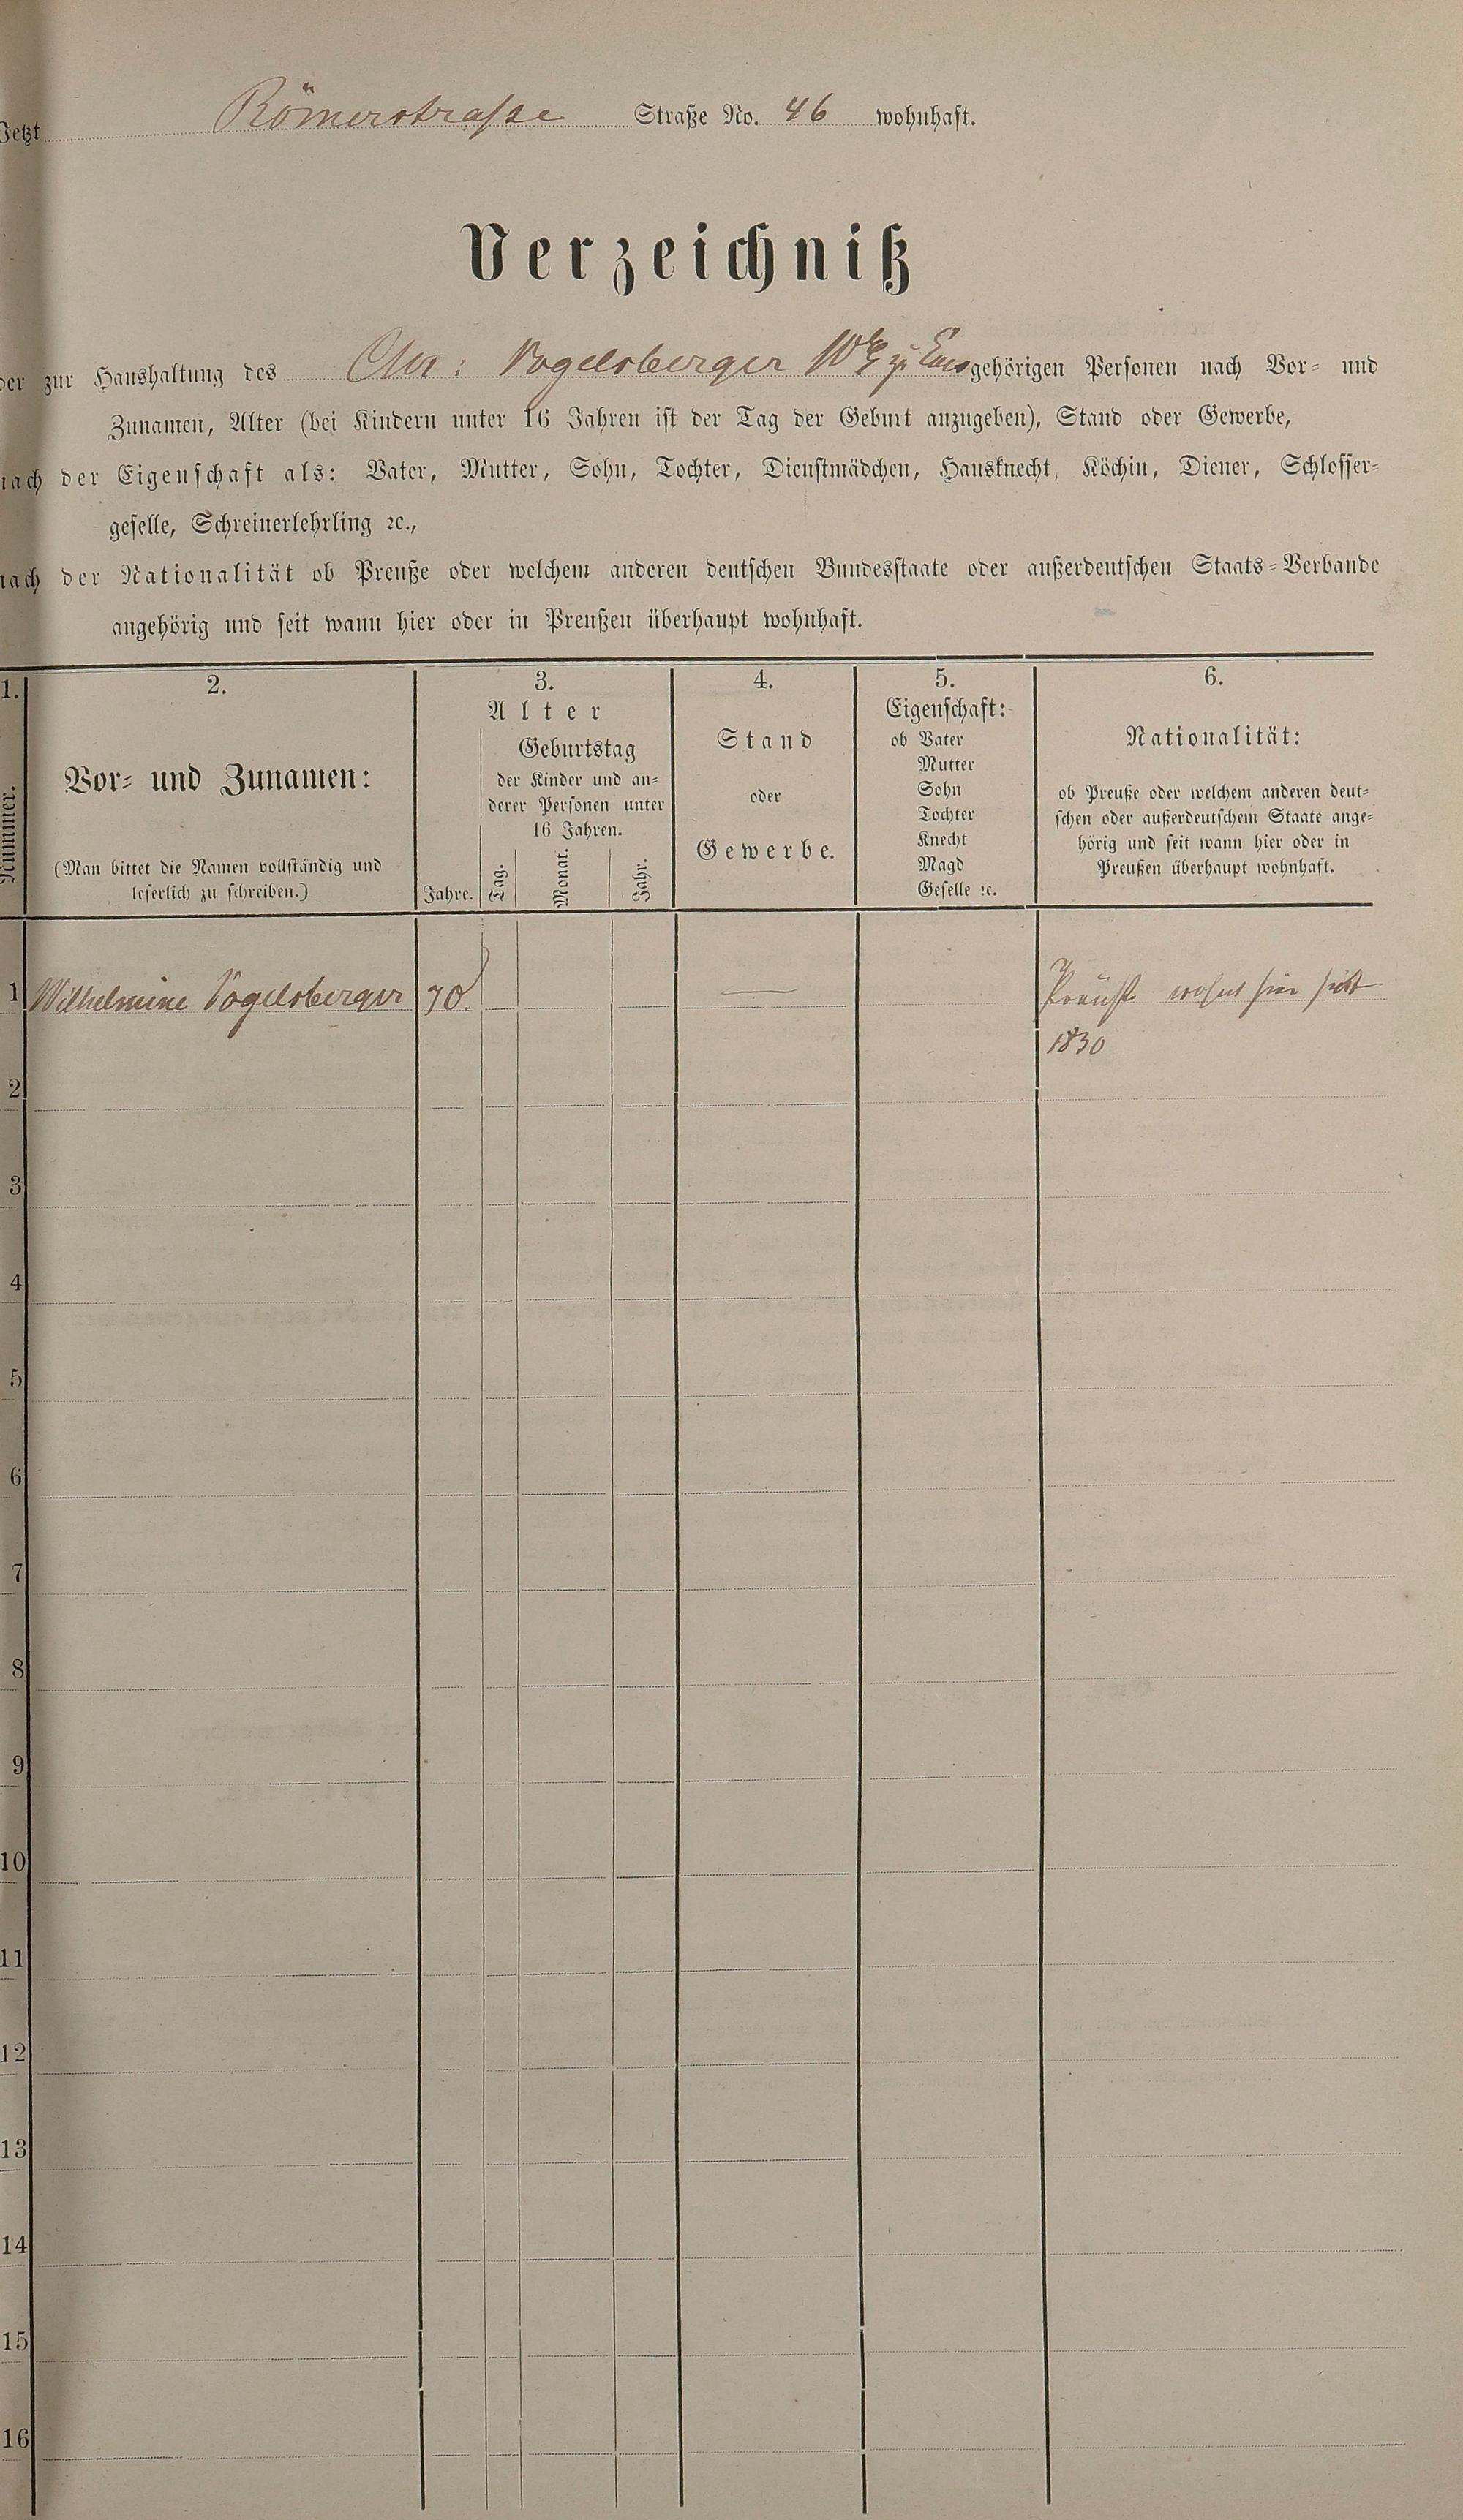 Jetzt Römerstraße Straße No. 46 wohnhaft.
Verzeichniß
der zur Haushaltung des Chr: Vogelsberger Wwe zu Ems gehörigen Personen nach Vor- und
Zunamen, Alter (bei Kindern unter 16 Jahren ist der Tag der Geburt anzugeben), Stand oder Gewerbe,
nach der Eigenschaft als: Vater, Mutter, Sohn, Tochter, Dienstmädchen, Hausknecht, Köchin, Diener, Schlosser-
geselle, Schreinerlehrling ꝛc.,
nach der Nationalität ob Preuße oder welchem anderen deutschen Bundesstaate oder außerdeutschen Staats-Verbande
angehörig und seit wann hier oder in Preußen überhaupt wohnhaft.
1.
Nummer.
2.
Vor- und Zunamen:
(Man bittet die Namen vollständig und
leserlich zu schreiben.)
3.
Alter
Geburtstag
der Kinder und an-
derer Personen unter
16 Jahren.
Jahre. Tag. Monat. Jahr.
4.
Stand
oder
Gewerbe.
5.
Eigenschaft:
ob Vater
Mutter
Sohn
Tochter
Knecht
Magd
Geselle ꝛc.
6.
Nationalität:
ob Preuße oder welchem anderen deut-
schen oder außerdeutschem Staate ange-
hörig und seit wann hier oder in
Preußen überhaupt wohnhaft.
1 Wilhelmine Vogelsberger 70 — Preuße wohnt hier seit
1830
2
3
4
5
6
7
8
9
10
11
12
13
14
15
16